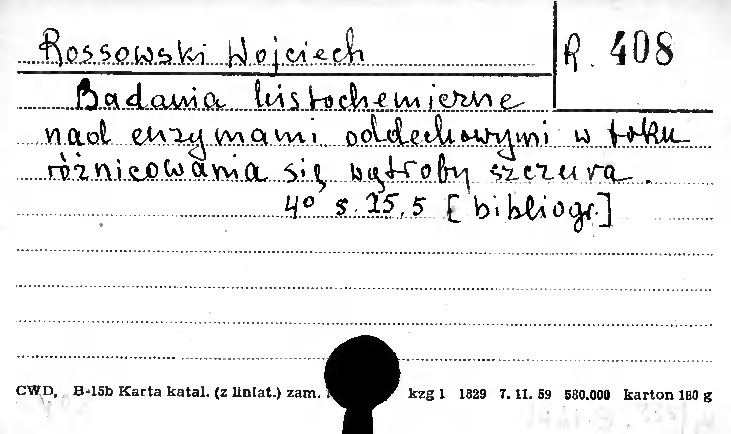 Rossowski Wojciech
R. 408
Badania histochemiczne
nad enzymami oddechowymi w toku
różnicowania się wątroby szczura.
4° s. 25, 5 [bibliogr.]
CWD, B-15b Karta katal. (z liniat.) zam. kzg 1 1829 7. II. 59 580.000 karton 180 g